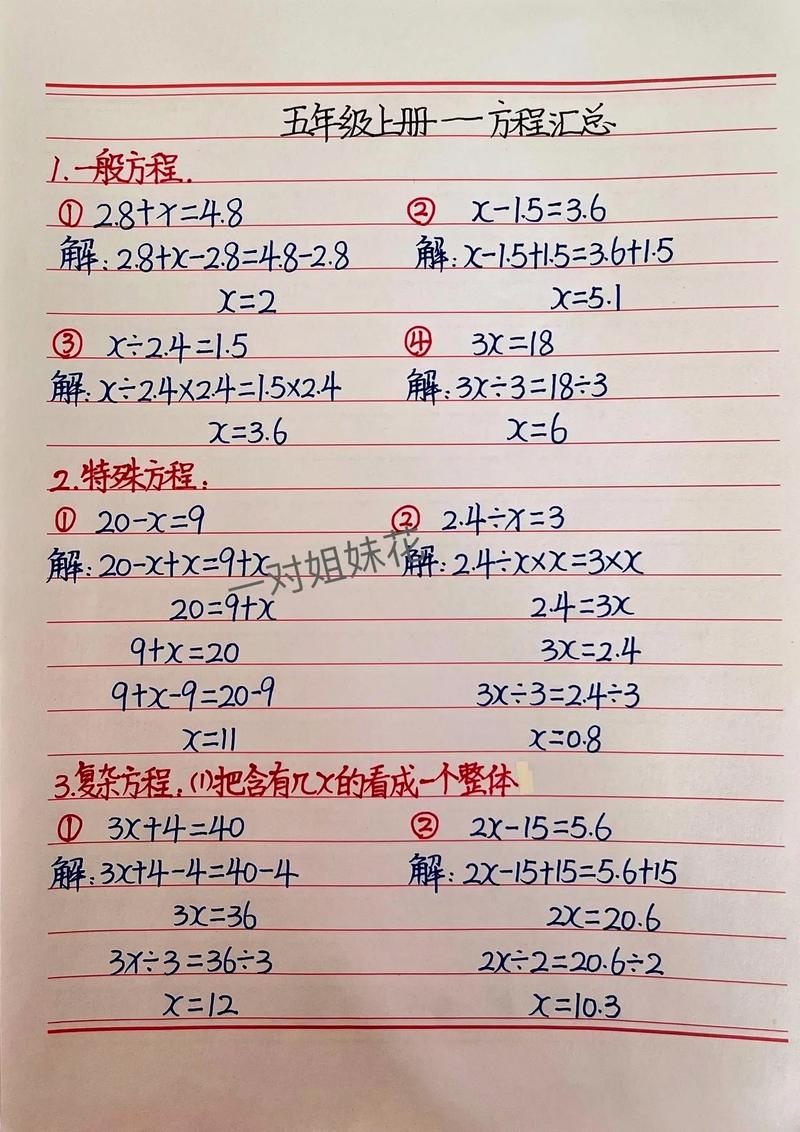 五年级上册——方程汇总
1.一般方程.
① 2.8+x=4.8 ② x-1.5=3.6
解:2.8+x-2.8=4.8-2.8 解:x-1.5+1.5=3.6+1.5
x=2 x=5.1
③ x÷2.4=1.5 ④ 3x=18
解:x÷2.4×2.4=1.5×2.4 解:3x÷3=18÷3
x=3.6 x=6
2.特殊方程:
① 20-x=9 ② 2.4÷x=3
解:20-x+x=9+x 解:2.4÷x×x=3×x
一对姐妹花
20=9+x 2.4=3x
9+x=20 3x=2.4
9+x-9=20-9 3x÷3=2.4÷3
x=11 x=0.8
3.复杂方程:(1)把含有几x的看成一个整体
① 3x+4=40 ② 2x-15=5.6
解:3x+4-4=40-4 解:2x-15+15=5.6+15
3x=36 2x=20.6
3x÷3=36÷3 2x÷2=20.6÷2
x=12 x=10.3